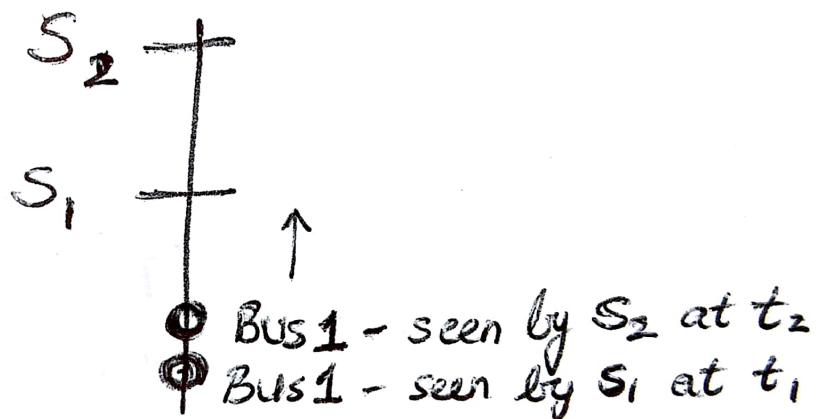 S₂
S₁
Bus1 - seen by S₂ at t₂
Bus1 - seen by S₁ at t₁